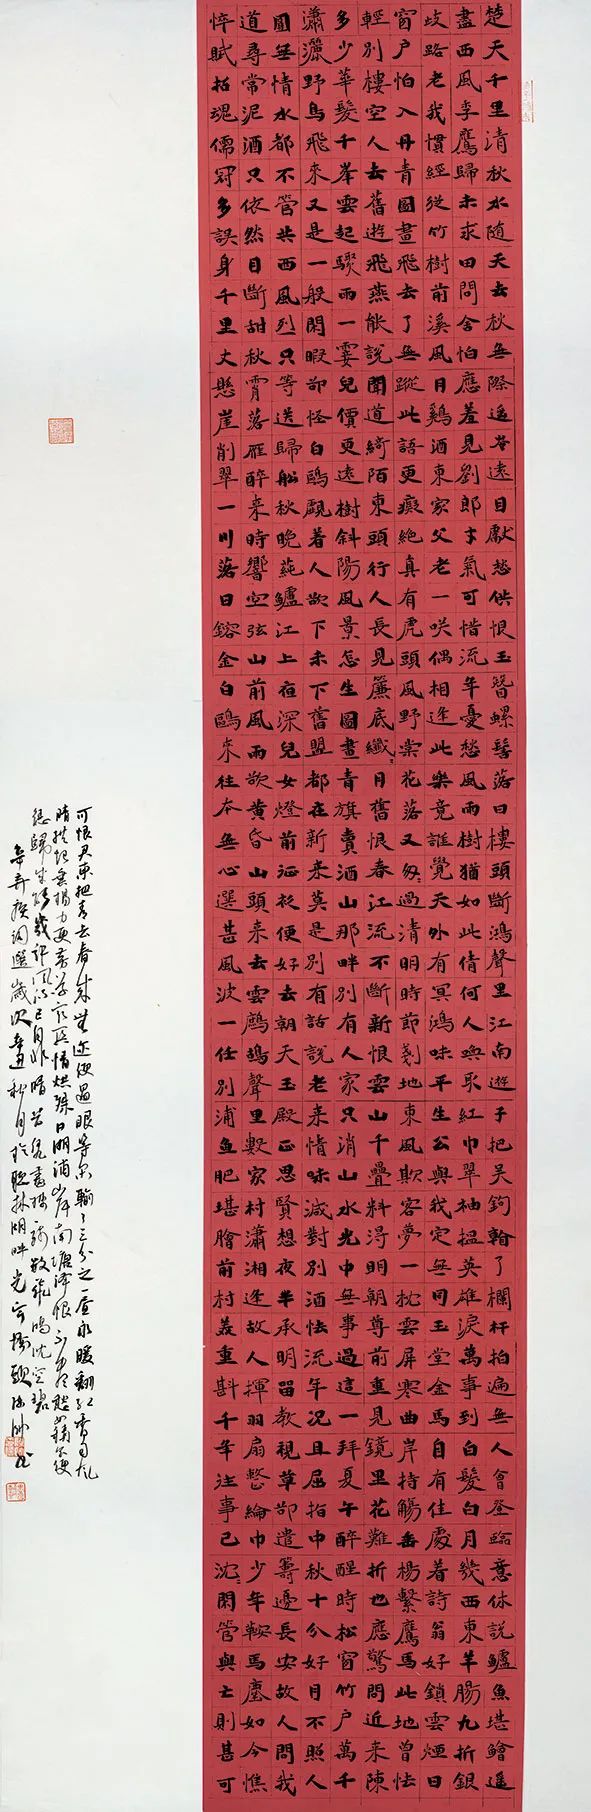 楚天千里清秋水随天去秋無際遥岑遠目獻愁供恨玉簪螺髻落日樓頭斷鴻聲里江南遊子把吳鉤看了欄杆拍遍無人會登臨意休說鱸魚堪鱠遥
盡西風季鷹歸未求田問舍怕應羞見劉郎才氣可惜流年憂愁風雨樹猶如此倩何人喚取紅巾翠袖揾英雄淚萬事到白髮日月幾西東羊腸九折銀
歧路老我慣經從竹樹前溪風月雞酒東家父老一咲偶相逢此樂竟誰覺天外有冥鴻味平生公與我定無同玉堂金馬自有佳處着詩翁好鎖雲煙日
窗户怕入丹青圖畫飛去了無蹤此語更癡絶真有虎頭風野棠花落又匆過清明時節剗地東風欺客夢一枕雲屏寒曲岸持觴垂楊繫鷹馬此地曾怯
輕別樓空人去舊遊飛燕能說聞道綺陌東頭行人長見簾底纖月舊恨春江流不斷新恨雲山千疊料得明朝尊前重見鏡里花難折也應驚問近來陳
多少華髮千峯雲起驟雨一霎兒價更遠樹斜陽風景怎生圖畫青旗賣酒山那畔別有人家只消山水光中無事過這一拜夏午醉醒時松窗竹户萬千
瀟灑野鳥飛來又是一般閑暇卻怪白鷗覷着人欲下未下舊盟都在新來莫是別有話說老來情味減對別酒怯流年況且屈指中秋十分好月不照人
圓無情水都不管共西風烈只等送歸船秋晚蒓鱸江上夜深兒女燈前征衫便好去朝天玉殿正思賢想夜半承明留教視草卻遣籌邊長安故人問我
道尋常泥酒只依然目斷甜秋霄落雁醉來時響空弦山前風雨欲黄昏山頭來去雲鷓鴣聲里數家村瀟湘逢故人揮羽扇整綸巾少年鞍馬塵如今憔
悴賦招魂儒冠多誤身千里丈懸崖削翠一川落日鎔金白鷗來往本無心選甚風波一任別浦魚肥堪膾前村美重斟千年往事已沈閑管與亡則甚可
可恨君更把青去春
辛弃疾詞選歲次辛丑秋月於